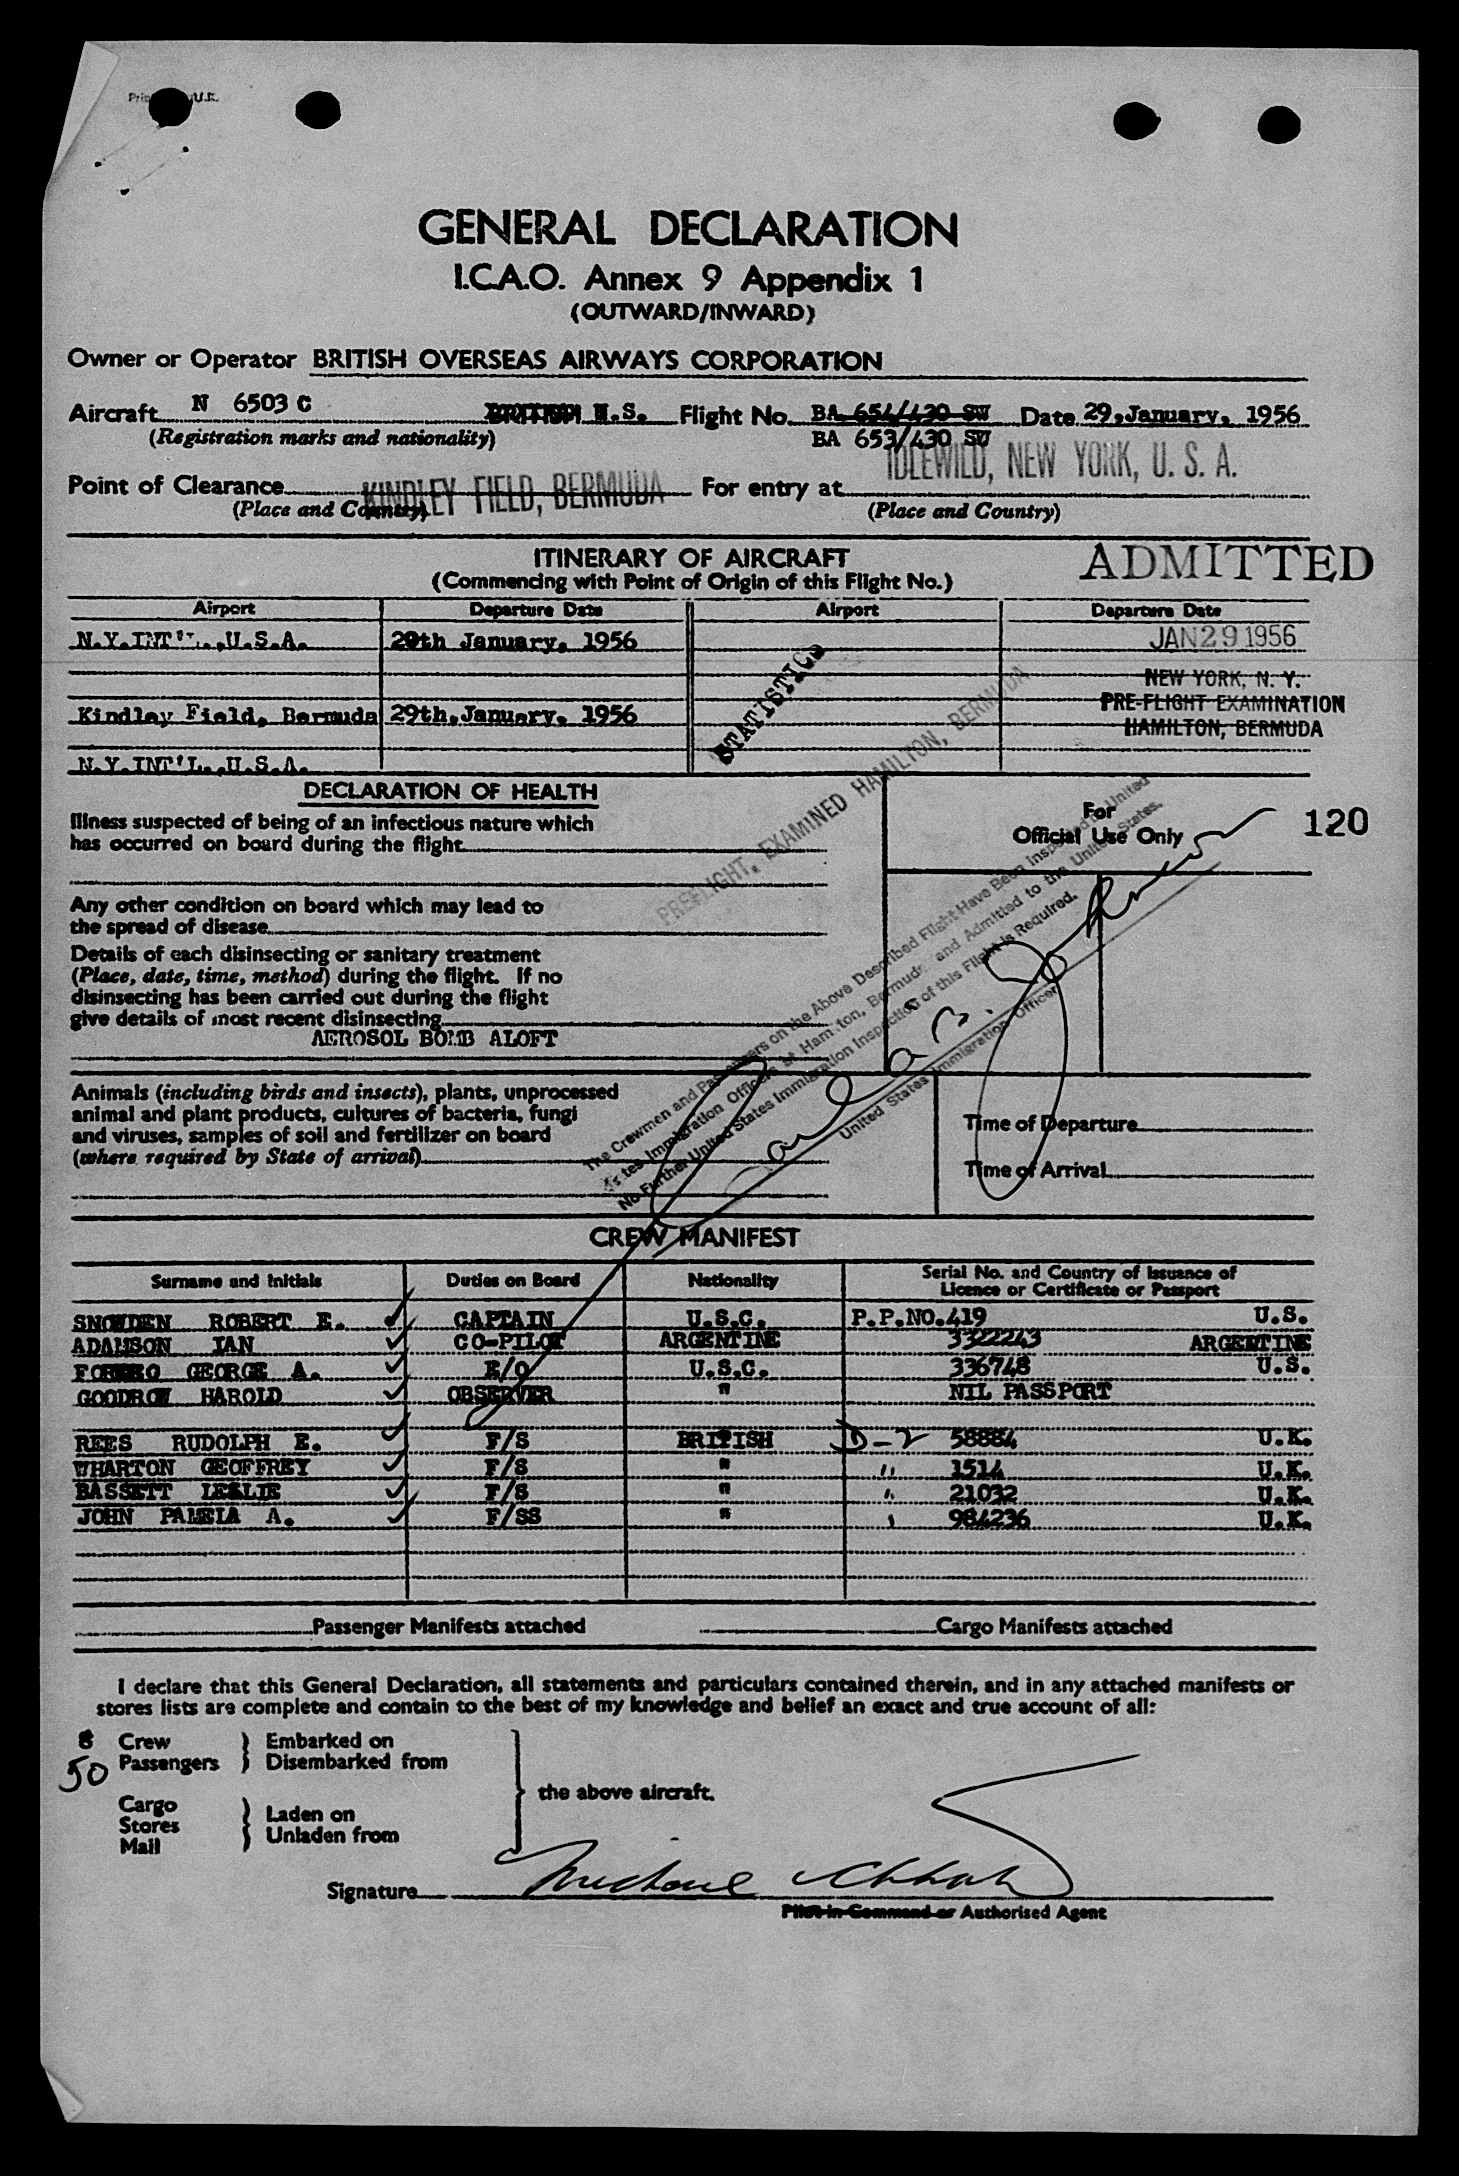 U.K.
GENERAL DECLARATION
I.C.A.O. Annex 9 Appendix 1
(OUTWARD/INWARD)
Owner or Operator BRITISH OVERSEAS AIRWAYS CORPORATION
Aircraft N 6503 C BRITISH U.S. Flight No. BA 654/430 SW Date 29, January, 1956
(Registration marks and nationality) BA 653/430 SU
Point of Clearance KINDLEY FIELD, BERMUDA For entry at IDLEWILD, NEW YORK, U. S. A.
(Place and Country) (Place and Country)
ITINERARY OF AIRCRAFT ADMITTED
(Commencing with Point of Origin of this Flight No.)
Airport Departure Date Airport Departure Date
N.Y.INT'L.,U.S.A. 29th January, 1956 JAN 29 1956
STATISTICS
NEW YORK, N. Y.
PRE-FLIGHT EXAMINATION
Kindley Field, Bermuda 29th, January, 1956
HAMILTON, BERMUDA
N.Y.INT'L.,U.S.A.
DECLARATION OF HEALTH
PREFLIGHT, EXAMINED HAMILTON, BERMUDA
For
Official Use Only 120
Illness suspected of being of an infectious nature which
has occurred on board during the flight
Any other condition on board which may lead to
the spread of disease
Details of each disinsecting or sanitary treatment
(Place, date, time, method) during the flight. If no
disinsecting has been carried out during the flight
give details of most recent disinsecting
AEROSOL BOMB ALOFT
The Crewmen and Passengers on the Above Described Flight Have Been Inspected by United
States Immigration Officers at Hamilton, Bermuda and Admitted to the United States.
No Further United States Immigration Inspection of this Flight is Required.
United States Immigration Officer
Animals (including birds and insects), plants, unprocessed
animal and plant products, cultures of bacteria, fungi
and viruses, samples of soil and fertilizer on board
(where required by State of arrival)
Time of Departure
Time of Arrival
CREW MANIFEST
Surname and Initials Duties on Board Nationality Serial No. and Country of Issuance of
Licence or Certificate or Passport
SNOWDEN ROBERT E. CAPTAIN U.S.C. P.P.NO.419 U.S.
ADAMSON IAN CO-PILOT ARGENTINE 3322243 ARGENTINE
GEORGE A. E/O U.S.C. 336748 U.S.
GOODROW HAROLD OBSERVER " NIL PASSPORT
REES RUDOLPH E. F/S BRITISH D-2 58884 U.K.
WHARTON GEOFFREY F/S " " 1514 U.K.
BASSETT LESLIE F/S " " 21032 U.K.
JOHN PAMELA A. F/SS " " 984236 U.K.
Passenger Manifests attached Cargo Manifests attached
I declare that this General Declaration, all statements and particulars contained therein, and in any attached manifests or
stores lists are complete and contain to the best of my knowledge and belief an exact and true account of all:
8 Crew Embarked on
50 Passengers Disembarked from
the above aircraft.
Cargo Laden on
Stores Unladen from
Mail
Signature
Pilot in Command or Authorised Agent